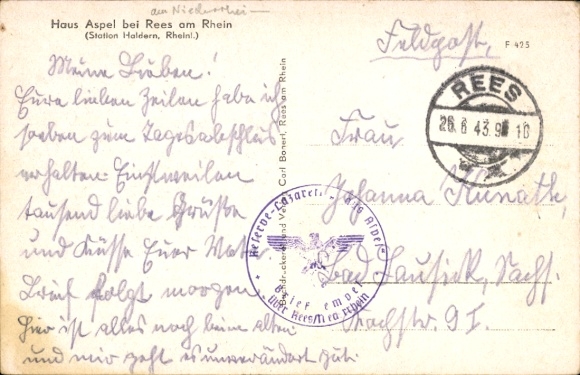 am Niederrhein
Haus Aspel bei Rees am Rhein
(Station Haldern, Rheinl.)
Meine Lieben!
Eure lieben Zeilen habe ich
soeben zum Tagesabschluß
erhalten. Einstweilen
tausend liebe Grüße
und Küsse Euer
Brief folgt morgen
Hier ist alles noch beim alten
und mir geht es unverändert gut.
Buchdruckerei und Verlag Carl Bonert, Rees am Rhein
Feldpost
F 423
REES
26.6.43.9 - 10
Frau
Johanna Kunath,
Bad Lausick, Sachs.
9 I.
Reserve-Lazarett Haus Aspel
Briefstempel
über Rees/Niederrhein